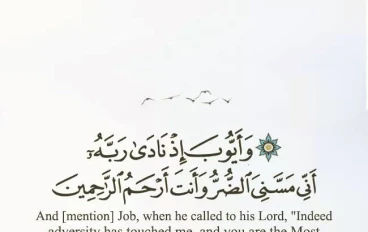 وَأَيُّوبَ إِذْ نَادَىٰ رَبَّهُۥٓ
أَنِّي مَسَّنِيَ الضُّرُّ وَأَنتَ أَرْحَمُ الرَّاحِمِينَ
And [mention] Job, when he called to his Lord, "Indeed
adversity has touched me, and you are the Most